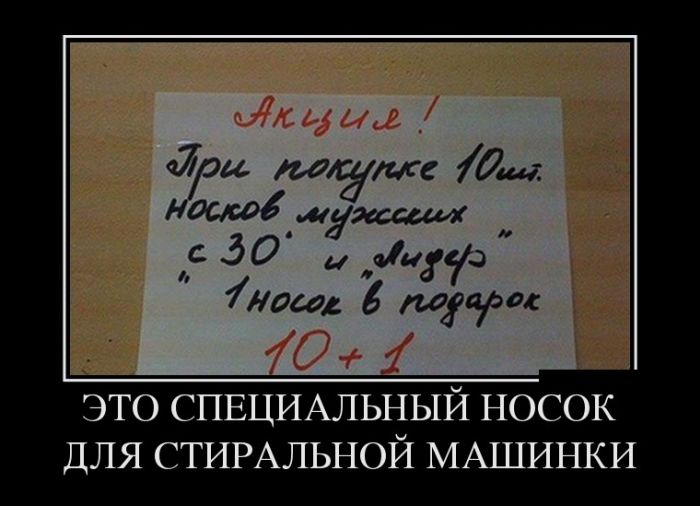 Акция!
При покупке 10шт.
носков мужских
"с 30" и „Лидер"
1 носок в подарок
10 + 1
ЭТО СПЕЦИАЛЬНЫЙ НОСОК
ДЛЯ СТИРАЛЬНОЙ МАШИНКИ